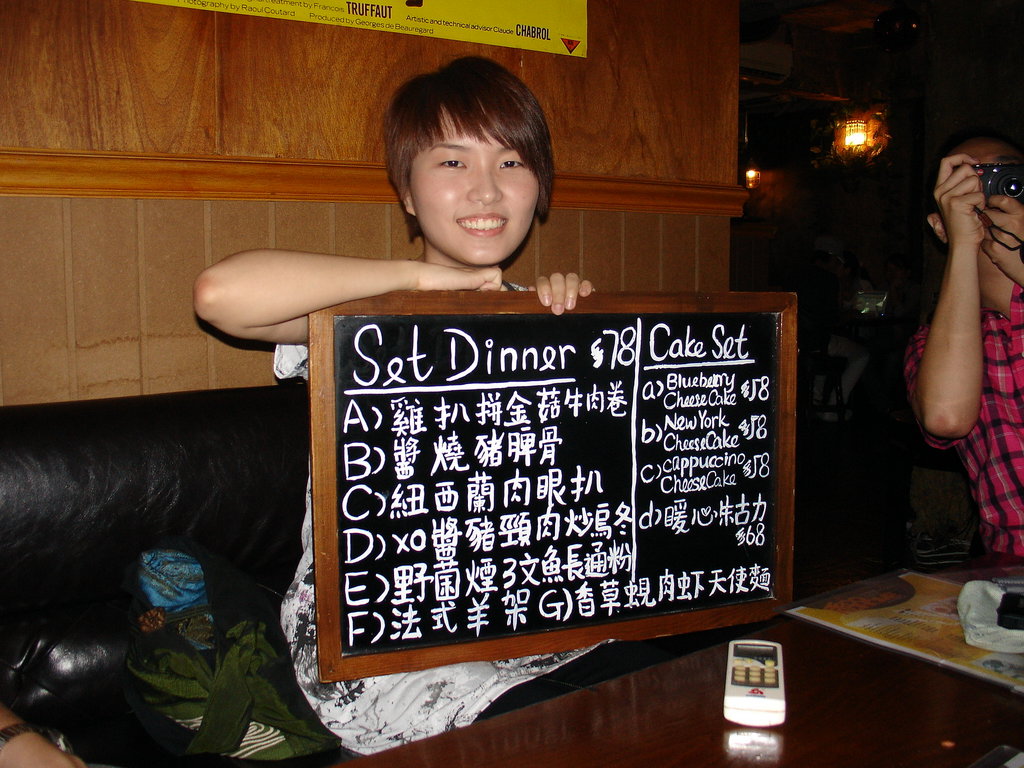 treatment by Francois TRUFFAUT
Photography by Raoul Coutard
Produced by Georges de Beauregard
Artistic and technical advisor Claude CHABROL
Set Dinner $78
A) 雞扒拼金菇牛肉卷
B) 醬燒豬脾骨
C) 紐西蘭肉眼扒
D) XO醬豬頸肉炒烏冬
E) 野菌煙三文魚長通粉
F) 法式羊架
G) 香草蜆肉蝦天使麵
Cake Set
a) Blueberry
Cheese Cake $58
b) New York
Cheese Cake $58
c) cappuccino
Cheese Cake $58
d) 暖心朱古力
$68